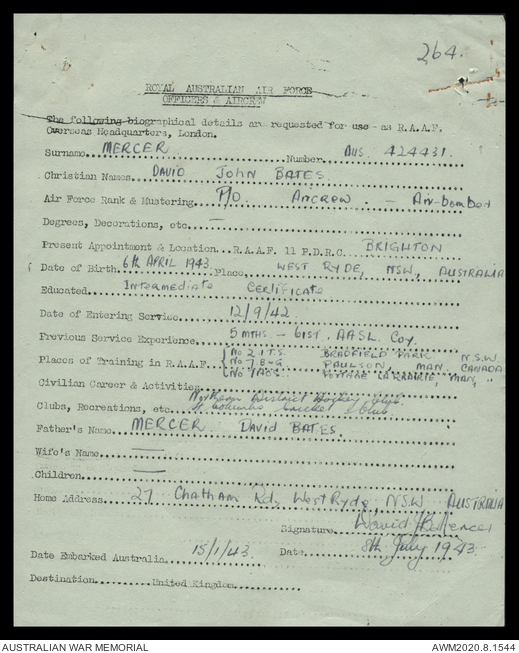 264.
ROYAL AUSTRALIAN AIR FORCE
OFFICERS & AIRCREW
The following biographical details are requested for use as R.A.A.F.
Overseas Headquarters, London.
Surname MERCER Number AUS. 424431.
Christian Names DAVID JOHN BATES.
Air Force Rank & Mustering P/O. Aircrew - Air-bomber
Degrees, Decorations, etc. —
Present Appointment & Location...R.A.A.F. 11 P.D.R.C. BRIGHTON
Date of Birth 6th APRIL 1943 Place, WEST RYDE, NSW, AUSTRALIA
Educated Intermediate Certificate
Date of Entering Service 12/9/42.
Previous Service Experience 5 mths - 61st. AASL. Coy.
Places of Training in R.A.A.F. No 2 I.T.S. BRADFIELD PARK N.S.W
No 7 B-G PAULSON, MAN. CANADA
No 7 AOS. PORTAGE LA PRAIRIE, MAN, "
Civilian Career & Activities
Northern District Hockey Club.
Clubs, Recreations, etc. St. Columbs Cricket Club.
Father's Name MERCER David BATES.
Wife's Name —
Children —
Home Address 27 Chatham Rd, West Ryde, NSW AUSTRALIA
Signature David JB Mercer
Date Embarked Australia 15/1/43. Date 8th July 1943.
Destination United Kingdom
AUSTRALIAN WAR MEMORIAL AWM2020.8.1544